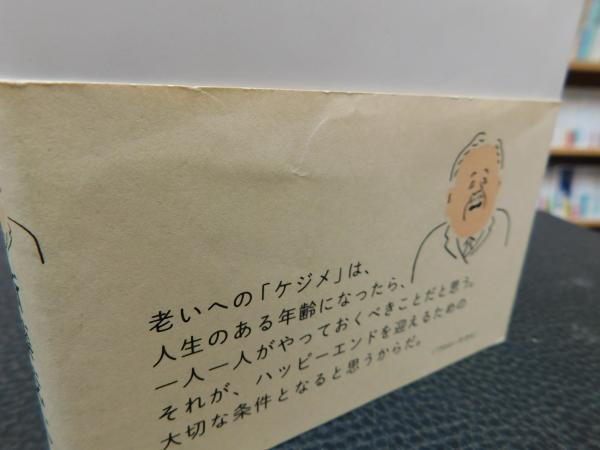 老いへの「ケジメ」は、
人生のある年齢になったら、
一人一人がやっておくべきことだと思う。
それが、ハッピーエンドを迎えるための
大切な条件となると思うからだ。